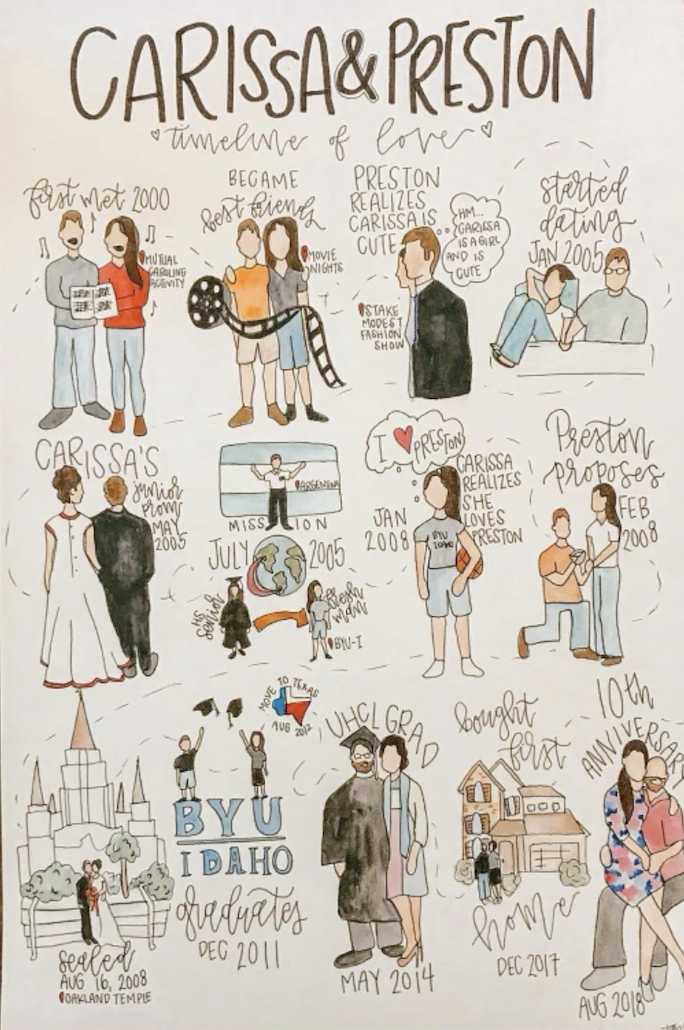 CARISSA & PRESTON
timeline of love
first met 2000
MUTUAL
CAROLING
ACTIVITY
BECAME
best friends
MOVIE
NIGHTS
PRESTON
REALIZES
CARISSA IS
CUTE
HM...
CARISSA
IS A GIRL
AND IS
CUTE
STAKE
MODEST
FASHION
SHOW
started
dating
JAN 2005
CARISSA'S
junior
prom
MAY
2005
ARGENTINA
MISSION
JULY 2005
HS
Senior
fresh
man
BYU-I
I ♥ PRESTON
JAN
2008
CARISSA
REALIZES
SHE
LOVES
PRESTON
BYU
IDAHO
Preston
proposes
FEB
2008
sealed
AUG 16, 2008
OAKLAND TEMPLE
MOVE TO TEXAS
AUG 2012
BYU
IDAHO
graduates
DEC 2011
UHCL GRAD
MAY 2014
bought
first
home
DEC 2017
10th
ANNIVERSARY
AUG 2018